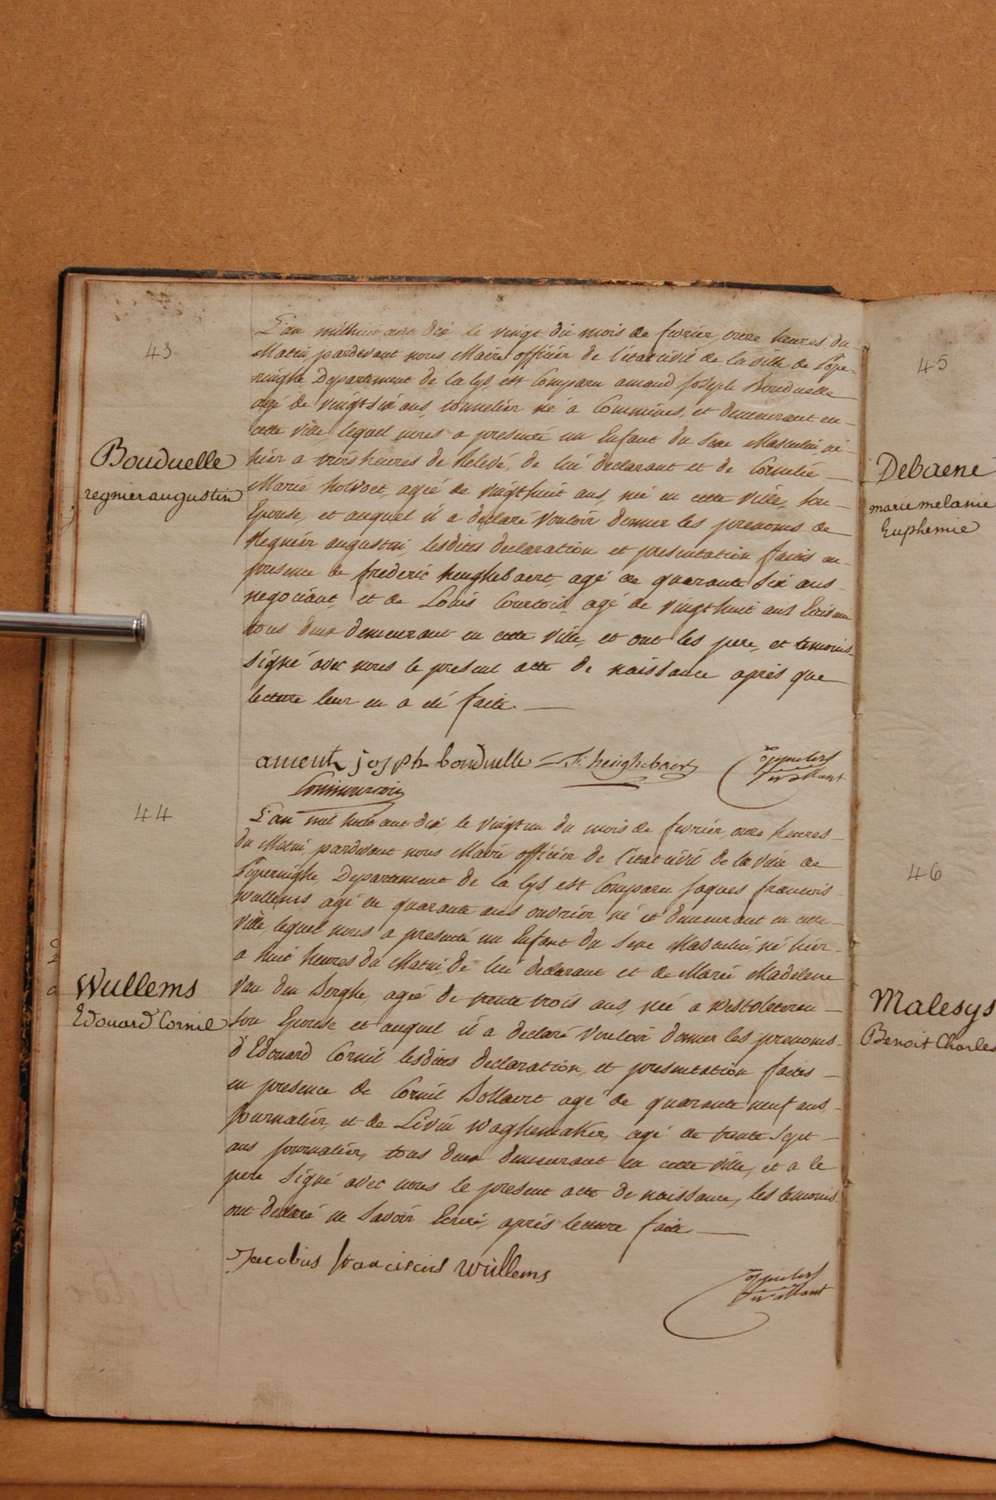 43
Bouduelle
regnier augustin
L'an milhuit cent dix le vingt du mois de fevrier, onze heures du
Matin, pardevant nous Maire officier de l'etat civil de la ville de Pope-
ringhe Departement de la Lys, est Comparu amand Joseph Bouduelle
agé de vingt six ans tonnelier né a Commines, et demeurant en
cette ville lequel nous a presenté un Enfant du Sexe Masculin né
hier a trois heures de Relevée, de lui declarant et de Cornelie
Marie holvoet, agée de vingt huit ans, née en cette ville, son
Epouse, et auquel il a declaré vouloir donner les prenoms de
Regnier augustin, lesdites declaration et presentation faites en
presence de frederic heughebaert, agé de quarante Six ans
negociant, et de Louis Courtois, agé de vingt huit ans Ecrivain
tous deux demeurant en cette ville, et ont les pere, et temoins
signé avec nous le present acte de naissance après que
lecture leur en a eté faite.
ament joseph bouduelle F. heughebaert
44
Wullems
Edouard Cornil
L'an mil huit cent dix le vingt un du mois de fevrier onze heures
du Matin pardevant nous Maire officier de l'etat civil de la ville de
Poperinghe Departement de la Lys est Comparu Jaques francois
Wullems agé de quarante ans ouvrier né et demeurant en cette
ville lequel nous a presenté un Enfant du Sexe Masculin, né hier
a huit heures du Matin, de lui declarant et de Marie Madelene
Van den Berghe, agée de trente trois ans, née a Westvleteren
son Epouse et auquel il a declaré vouloir donner les prenoms
d'Edouard Cornil lesdites declaration, et presentation faites
en presence de Cornil Bollaert agé de quarante neuf ans
journalier, et de Livin Waghemaker, agé de trente sept
ans journalier, tous deux demeurant en cette ville, et a le
pere signé avec nous le present acte de naissance, les temoins
ont declaré ne Savoir Ecrire, après lecture faite
Jacobus franciscus Wullems
45
Debaene
marie melanie
Euphemie
46
Malesys
Benoit Charles